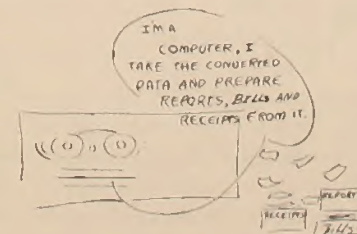 I'M A
COMPUTER, I
TAKE THE CONVERTED
DATA AND PREPARE
REPORTS, BILLS AND
RECEIPTS FROM IT.
REPORT
RECEIPTS
BILLS